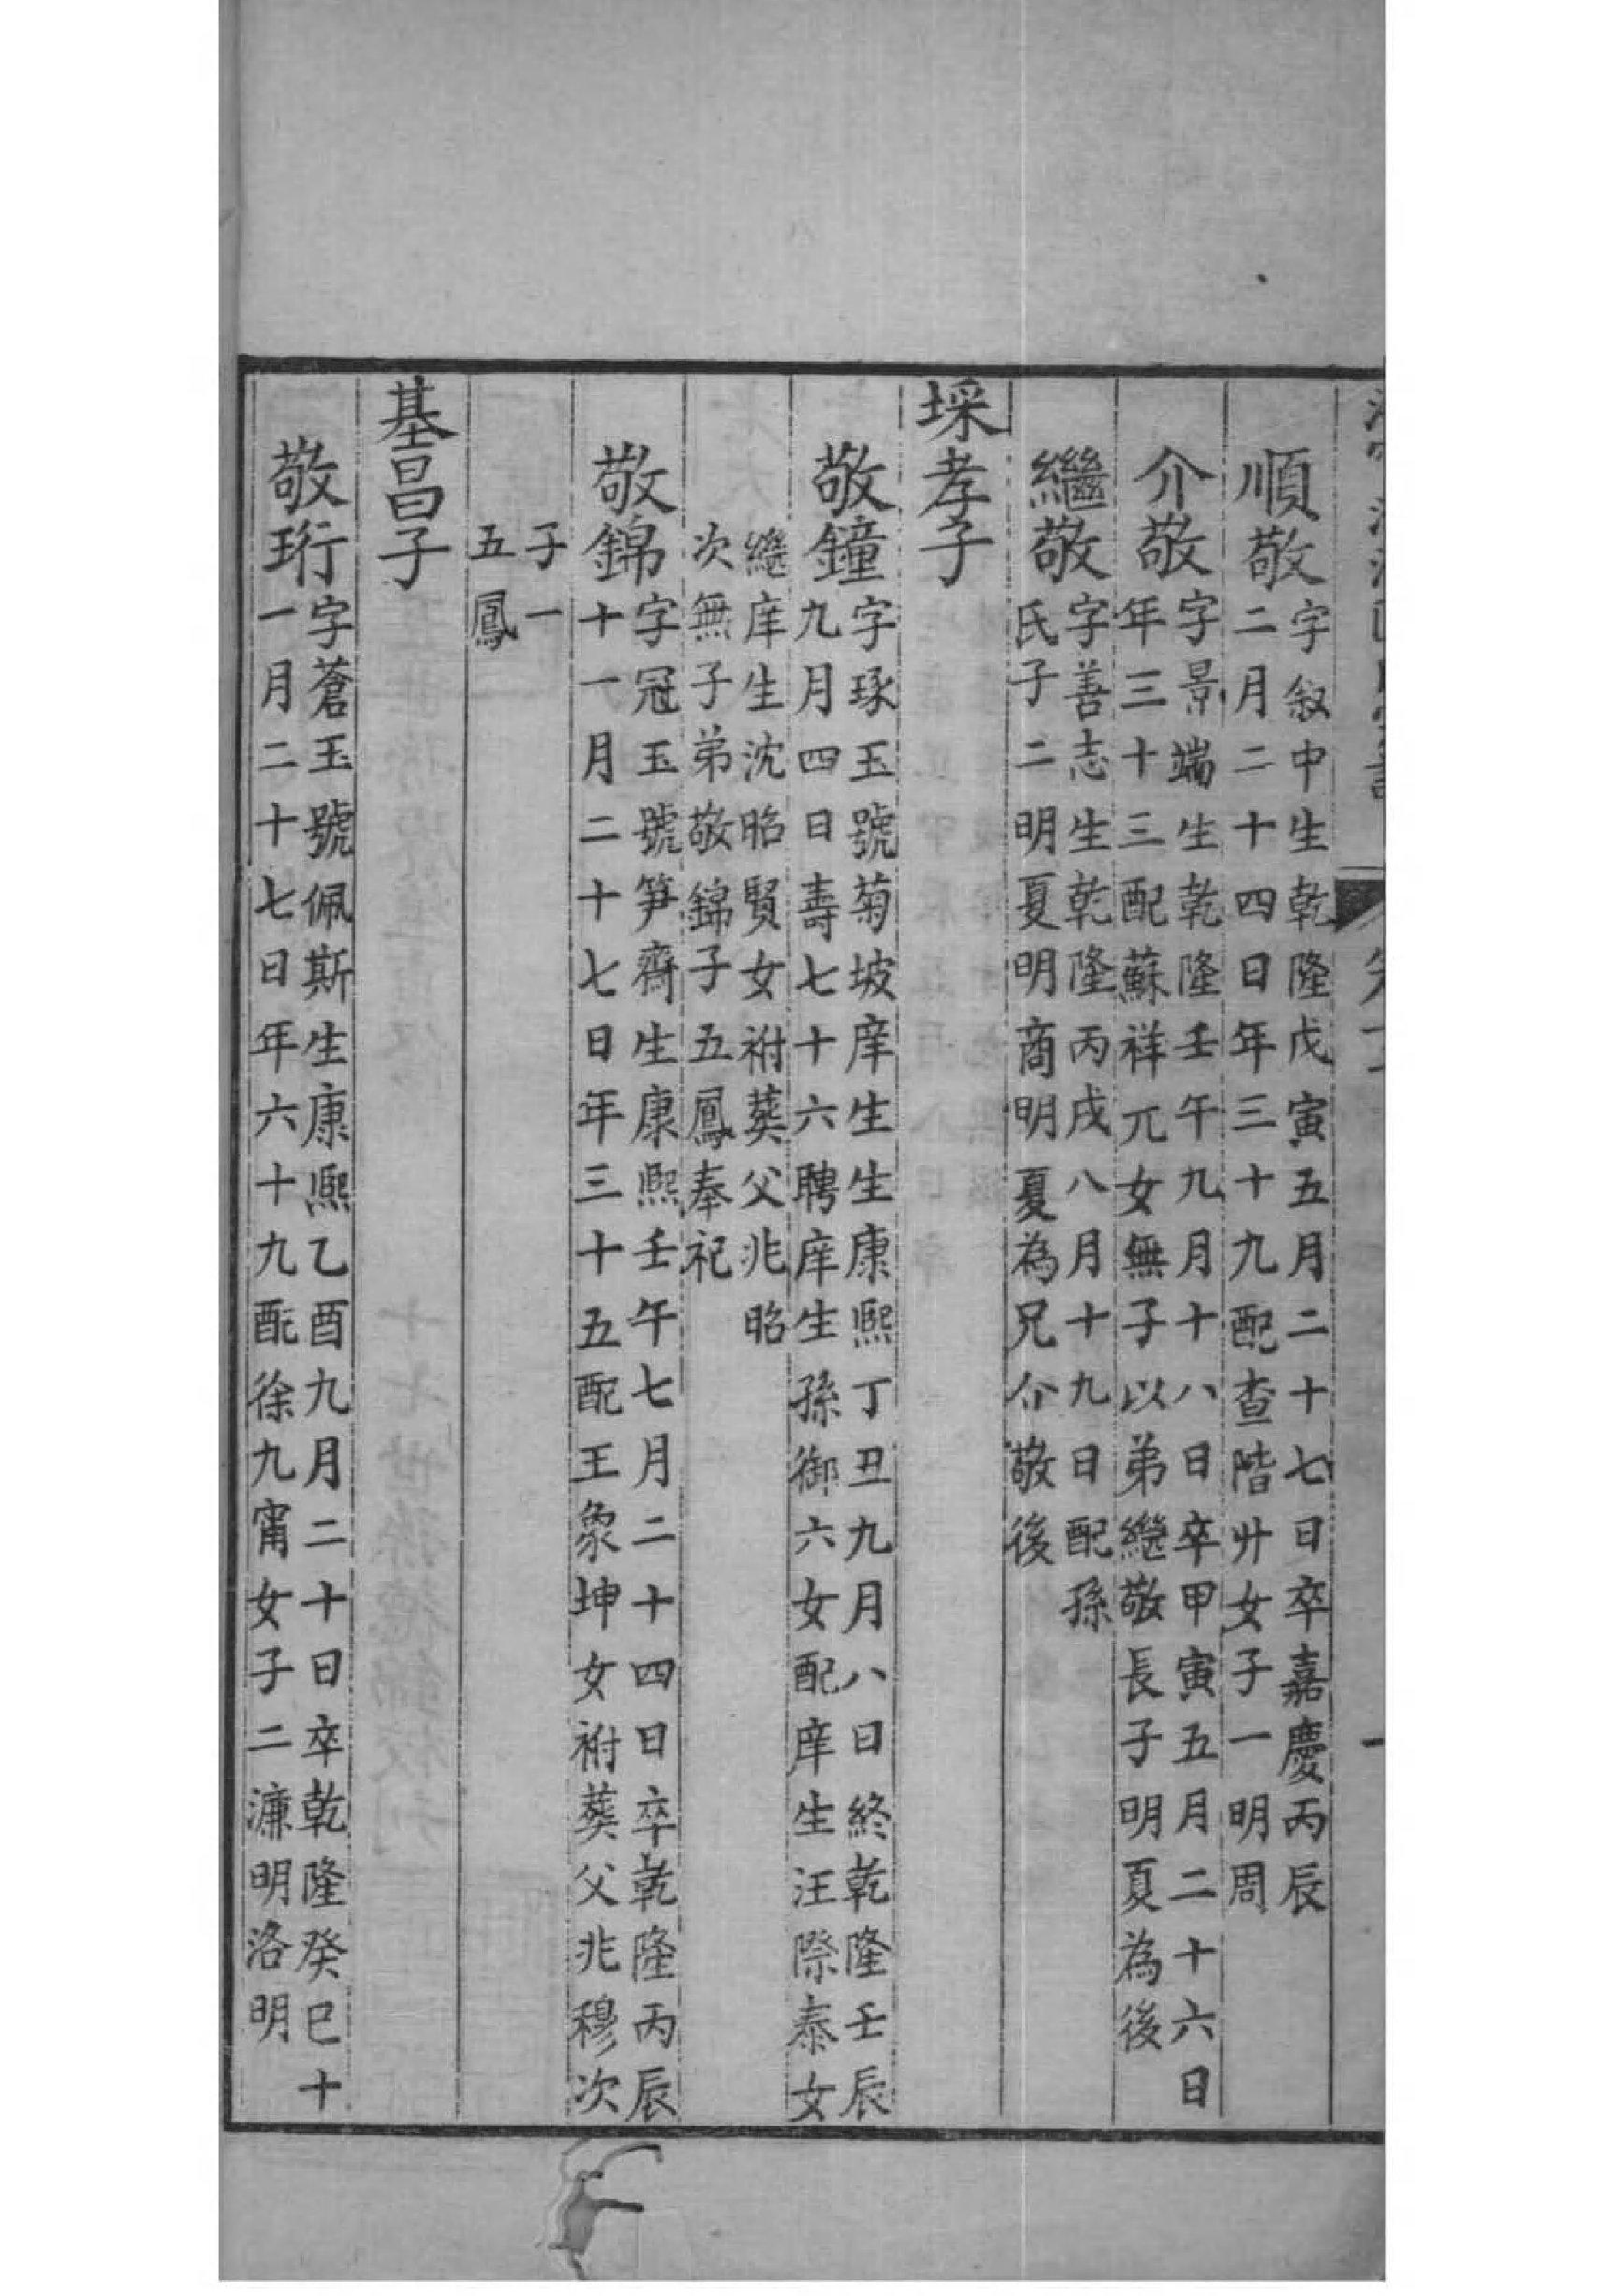 順敬字敘中生乾隆戊寅五月二十七日卒嘉慶丙辰
二月二十四日年三十九配查階廾女子一明周
介敬字景端生乾隆壬午九月十八日卒甲寅五月二十六日
年三十三配蘇祥兀女無子以弟繼敬長子明夏為後
繼敬字善志生乾隆丙戌八月十九日配孫
氏子二明夏明商明夏為兄介敬後
埰孝子
敬鐘字琢玉號菊坡庠生生康熙丁丑九月八日終乾隆壬辰
九月四日壽七十六聘庠生孫御六女配庠生汪際泰女
繼庠生沈昭賢女祔葬父兆昭
次無子弟敬錦子五鳳奉祀
敬錦字冠玉號笋齊生康熙壬午七月二十四日卒乾隆丙辰
十一月二十七日年三十五配王象坤女祔葬父兆穆次
子一
五鳳
基昌子
敬珩字蒼玉號佩斯生康熙乙酉九月二十日卒乾隆癸巳十
一月二十七日年六十九配徐九甯女子二濂明洛明